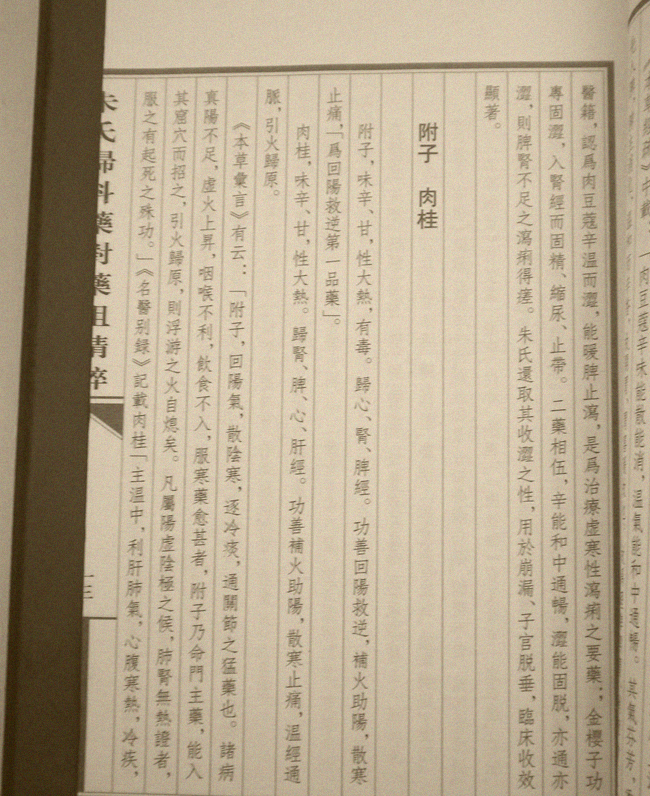 肉豆蔻辛味能散能消，溫氣能和中通暢。其氣芬芳，
醫籍，認爲肉豆蔻辛溫而澀，能暖脾止瀉，是爲治療虛寒性瀉痢之要藥；金櫻子功
專固澀，入腎經而固精、縮尿、止帶。二藥相伍，辛能和中通暢，澀能固脱，亦通亦
澀，則脾腎不足之瀉痢得瘥。朱氏還取其收澀之性，用於崩漏、子宫脱垂，臨床收效
顯著。
附子　肉桂
附子，味辛、甘，性大熱，有毒。歸心、腎、脾經。功善回陽救逆，補火助陽，散寒
止痛，「爲回陽救逆第一品藥」。
肉桂，味辛、甘，性大熱。歸腎、脾、心、肝經。功善補火助陽，散寒止痛，温經通
脈，引火歸原。
《本草彙言》有云：「附子，回陽氣，散陰寒，逐冷痰，通關節之猛藥也。諸病
真陽不足，虛火上昇，咽喉不利，飲食不入，服寒藥愈甚者，附子乃命門主藥，能入
其窟穴而招之，引火歸原，則浮游之火自熄矣。凡屬陽虛陰極之候，肺腎無熱證者，
服之有起死之殊功。」《名醫别録》記載肉桂「主温中，利肝肺氣，心腹寒熱，冷疾，
朱氏婦科藥對藥組精粹